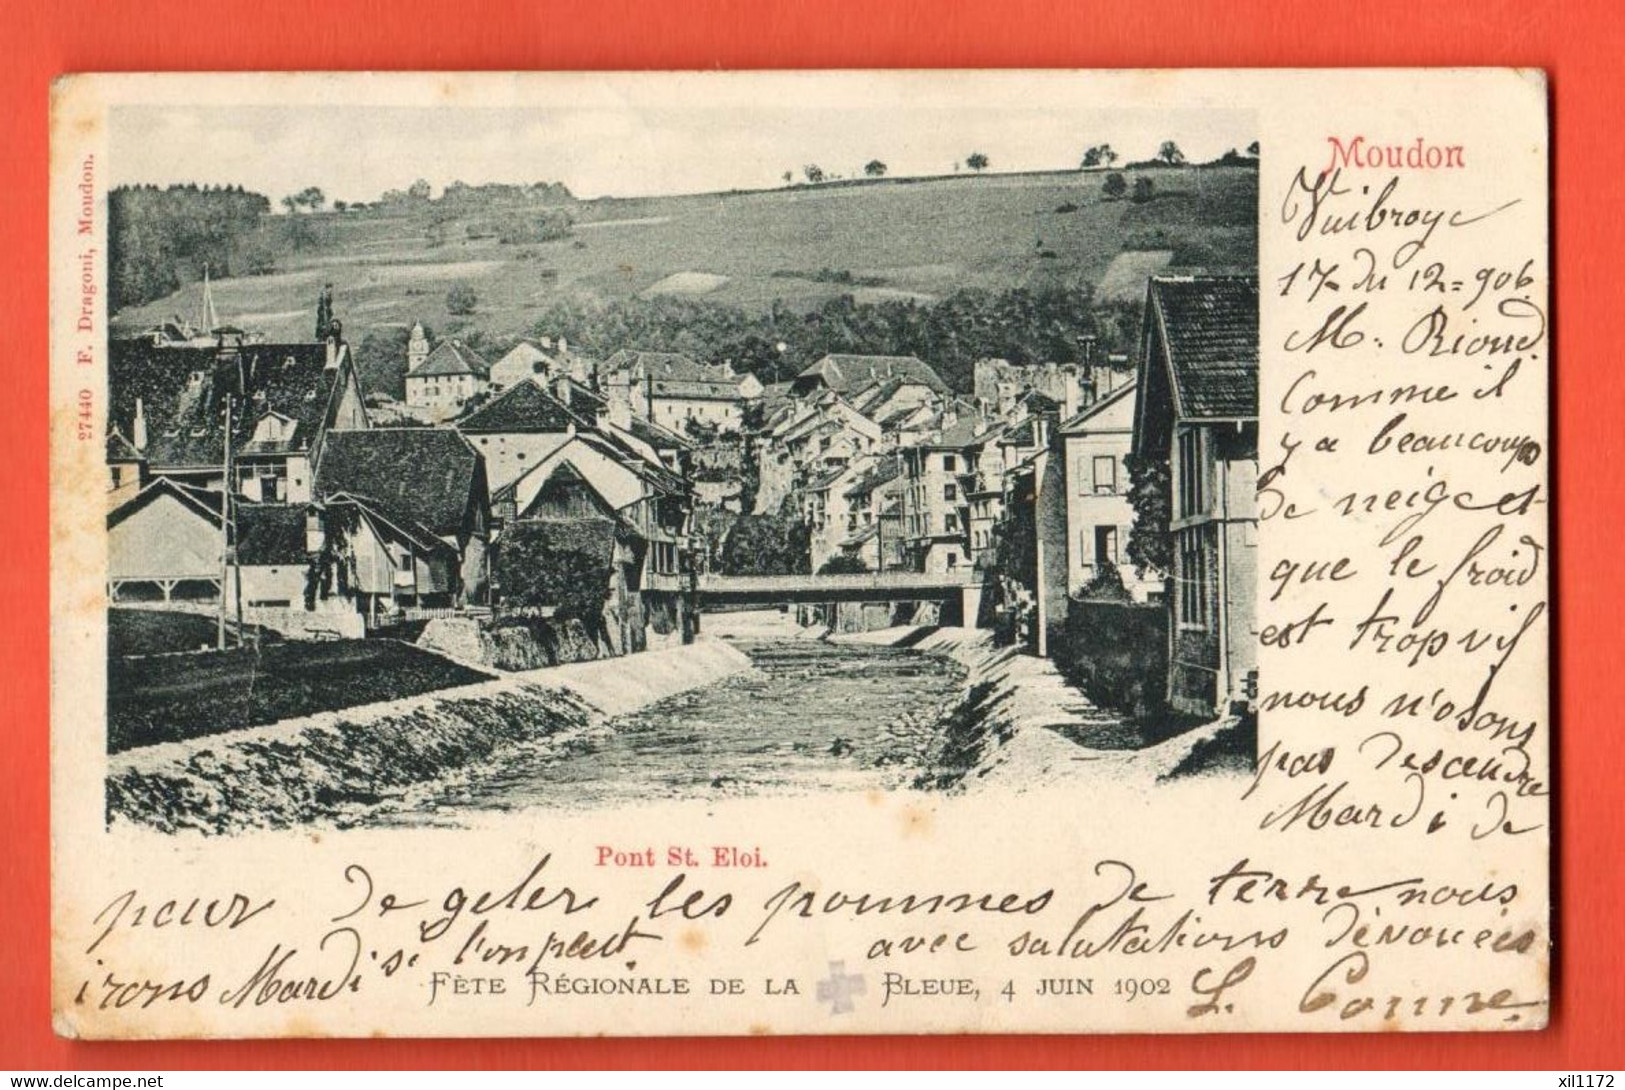 Moudon
27440 F. Dragoni, Moudon.
Vuibroye
17 du 12 = 906
M. Rioud.
Comme il
y a beaucoup
de neige et
que le froid
est trop vif
nous n'osons
pas desændre
Mardi de
Pont St. Eloi.
peur de geler les pommes de terre nous
irons Mardi si l'on peut. avec salutations dévouées
Fète Régionale de la Bleue, 4 juin 1902
L.
xil1172